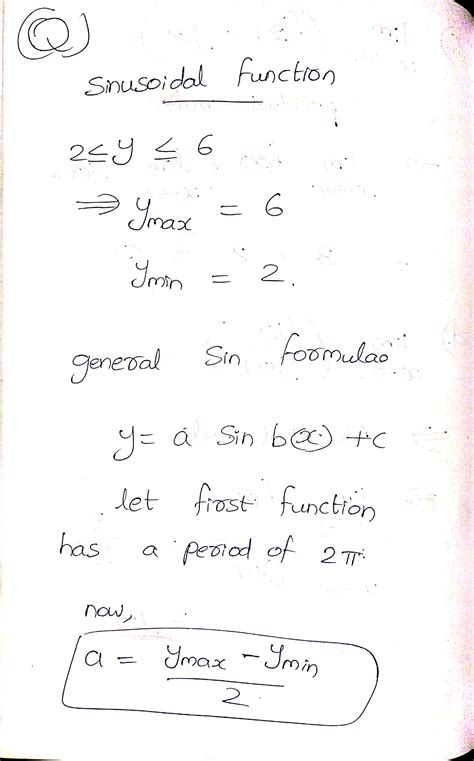 Q
Sinusoidal function
2≤y ≤ 6
⇒ ymax = 6
ymin = 2.
general Sin foormulao
y= a Sin b(x) +c
let first function
has a period of 2π.
now,
a = ymax - ymin / 2